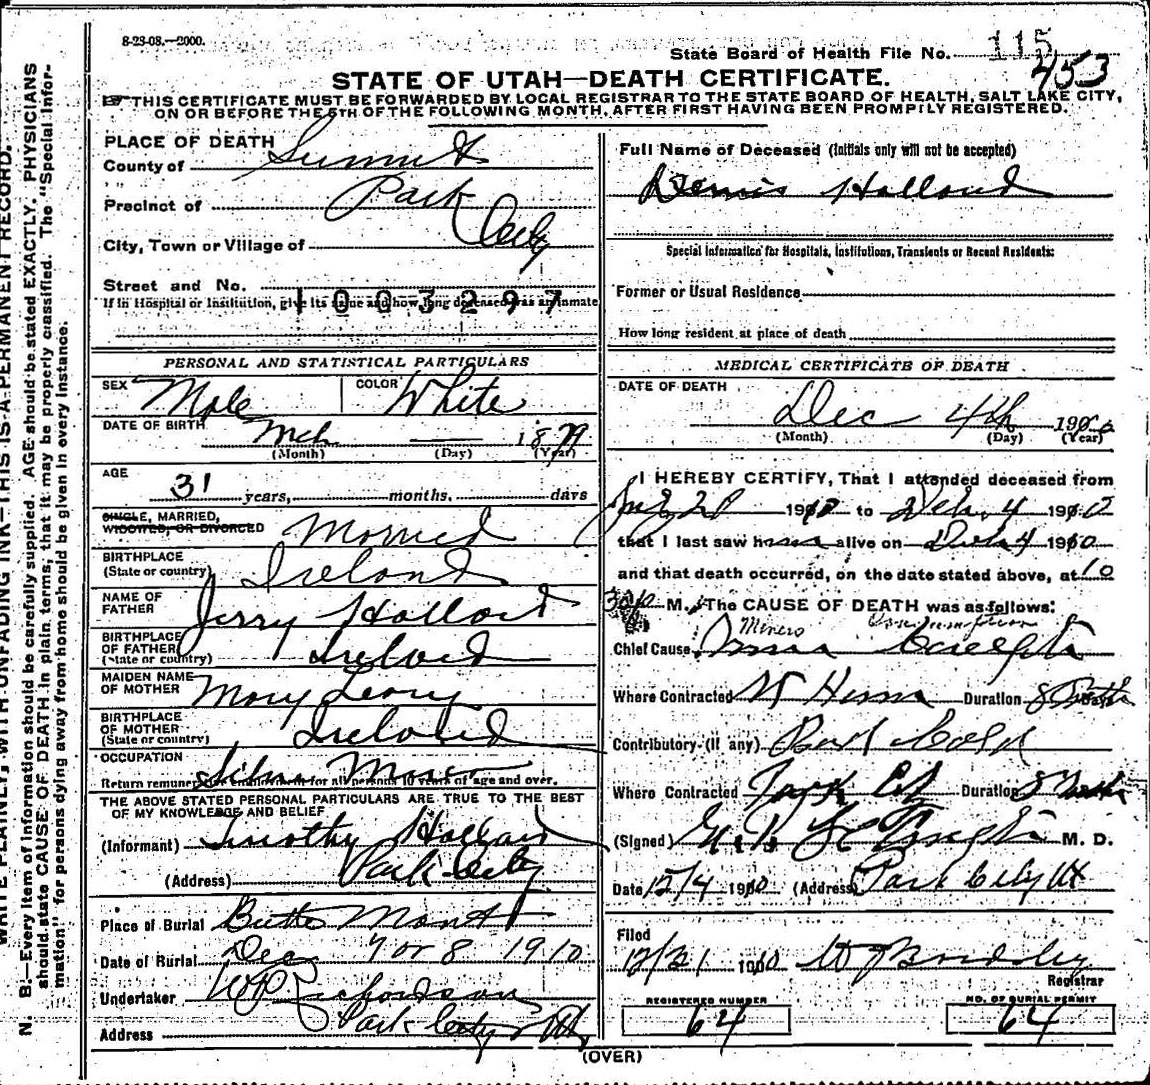 8-23-08.—2000.
State Board of Health File No. 115
453
STATE OF UTAH—DEATH CERTIFICATE.
THIS CERTIFICATE MUST BE FORWARDED BY LOCAL REGISTRAR TO THE STATE BOARD OF HEALTH, SALT LAKE CITY,
ON OR BEFORE THE 5TH OF THE FOLLOWING MONTH, AFTER FIRST HAVING BEEN PROMPTLY REGISTERED.
N. B.—Every item of information should be carefully supplied. AGE should be stated EXACTLY. PHYSICIANS
should state CAUSE OF DEATH in plain terms, that it may be properly classified. The "Special Infor-
mation" for persons dying away from home should be given in every instance.
WRITE PLAINLY, WITH UNFADING INK—THIS IS A PERMANENT RECORD.
PLACE OF DEATH
County of Summit
Precinct of Park
City, Town or Village of City
Street and No.
If in Hospital or Institution, give its name and how long deceased was an inmate
1003297
PERSONAL AND STATISTICAL PARTICULARS
SEX Male COLOR White
DATE OF BIRTH Mch — 1879
(Month) (Day) (Year)
AGE
31 years, months, days
SINGLE, MARRIED,
WIDOWED, OR DIVORCED Married
BIRTHPLACE
(State or country) Ireland
NAME OF
FATHER Jerry Holland
BIRTHPLACE
OF FATHER
(State or country) Ireland
MAIDEN NAME
OF MOTHER Mary Leary
BIRTHPLACE
OF MOTHER
(State or country) Ireland
OCCUPATION Miner
Return remunerative employment for all persons 10 years of age and over.
THE ABOVE STATED PERSONAL PARTICULARS ARE TRUE TO THE BEST
OF MY KNOWLEDGE AND BELIEF
(Informant) Timothy Holland
(Address) Park City
Place of Burial Butte Mont
Date of Burial Dec 7 or 8 1910
Undertaker W P Richardson
Address Park City Ut
Full Name of Deceased (Initials only will not be accepted)
Dennis Holland
Special Information for Hospitals, Institutions, Transients or Recent Residents:
Former or Usual Residence
How long resident at place of death
MEDICAL CERTIFICATE OF DEATH
DATE OF DEATH
Dec 4th 1910
(Month) (Day) (Year)
I HEREBY CERTIFY, That I attended deceased from
1910 to Dec. 4 1910
that I last saw him alive on Dec 4 1910
and that death occurred, on the date stated above, at 10
30 M. The CAUSE OF DEATH was as follows:
Miners Consumption
Chief Cause
Where Contracted Duration
Contributory (if any) Bad Cold
Where Contracted Park City Duration
(Signed) M. D.
Date 12/4 1910 (Address) Park City Ut
Filed
12/31 1910
Registrar
REGISTERED NUMBER
64
NO. OF BURIAL PERMIT
64
(OVER)